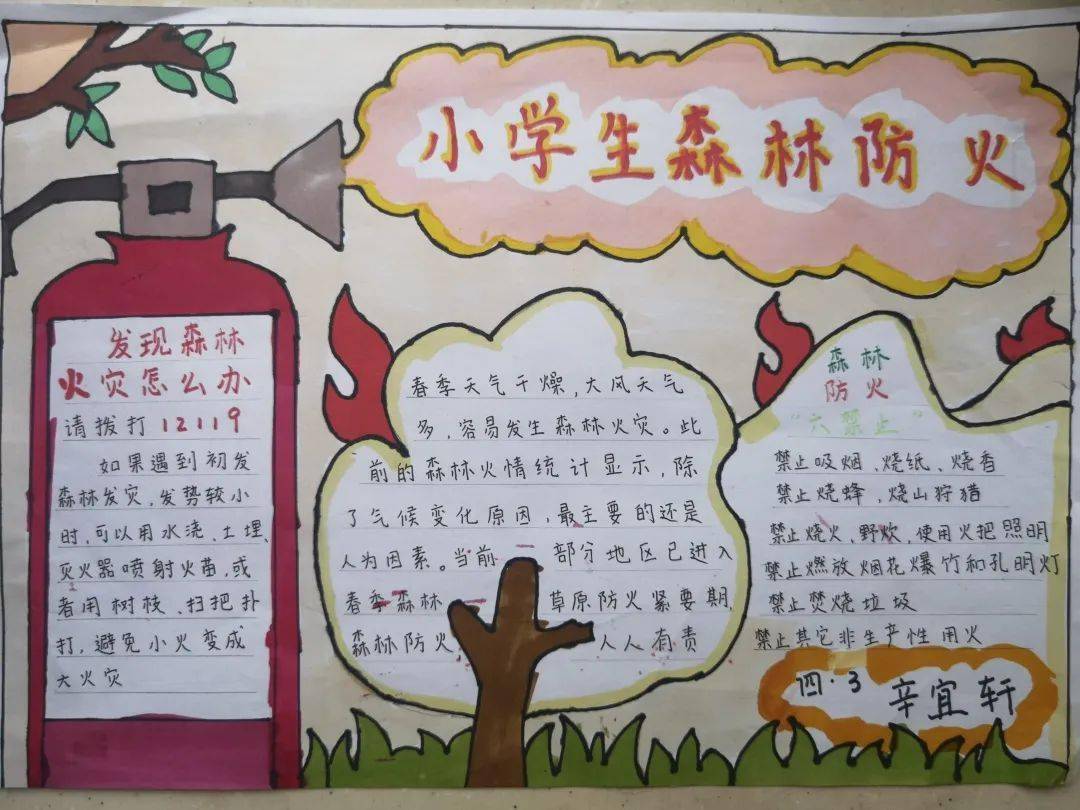 小学生森林防火
发现森林
火灾怎么办
请拨打12119
如果遇到初发
森林发灾,发势较小
时,可以用水浇、土埋、
灭火器喷射火苗,或
者用树枝、扫把扑
打,避免小火变成
大火灾
春季天气干燥,大风天气
多,容易发生森林火灾。此
前的森林火情统计显示,除
了气候变化原因,最主要的还是
人为因素。当前 部分地区已进入
春季森林 草原防火紧要期,
森林防火 人人有责
森林
防火
“六禁止”
禁止吸烟、烧纸、烧香
禁止烧蜂,烧山狩猎
禁止烧火、野炊,使用火把照明
禁止燃放烟花爆竹和孔明灯
禁止焚烧垃圾
禁止其它非生产性用火
四·3 辛宜轩